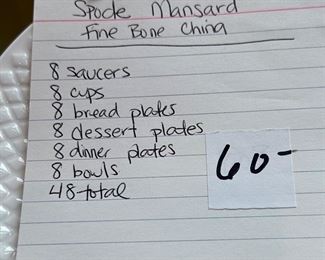 Spode Mansard
Fine Bone China
8 saucers
8 cups
8 bread plates
8 dessert plates
8 dinner plates
8 bowls
48 total
60-